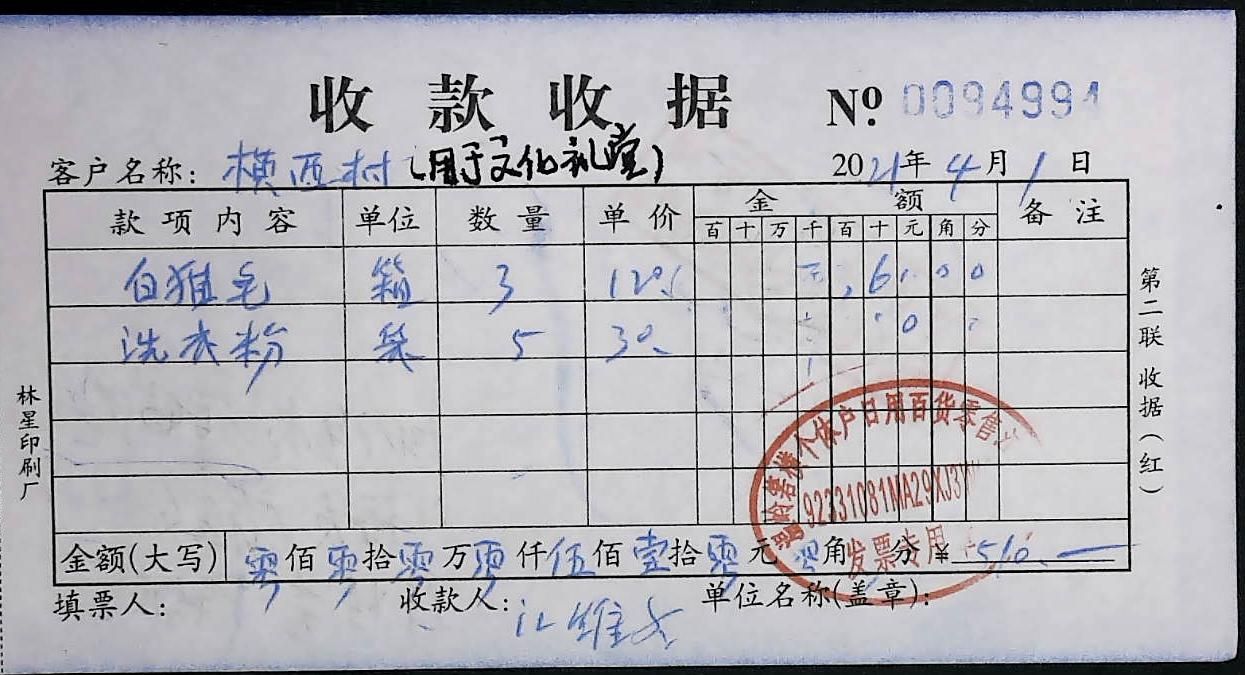 收款收据 Nº 0094991
客户名称: 横西村(用于文化礼堂) 2021年4月1日
款项内容 单位 数量 单价 金额 备注
百 十 万 千 百 十 元 角 分
白猫毛 箱 3 120 6 0 0
洗衣粉 袋 5 30 0
金额(大写) 零佰零拾零万零仟伍佰壹拾零元零角 分 ¥ 510.
填票人: 收款人: 江维 单位名称(盖章):
林星印刷厂
第二联 收据(红)
个体户日用百货零售
92331081MA29XJ3
发票专用